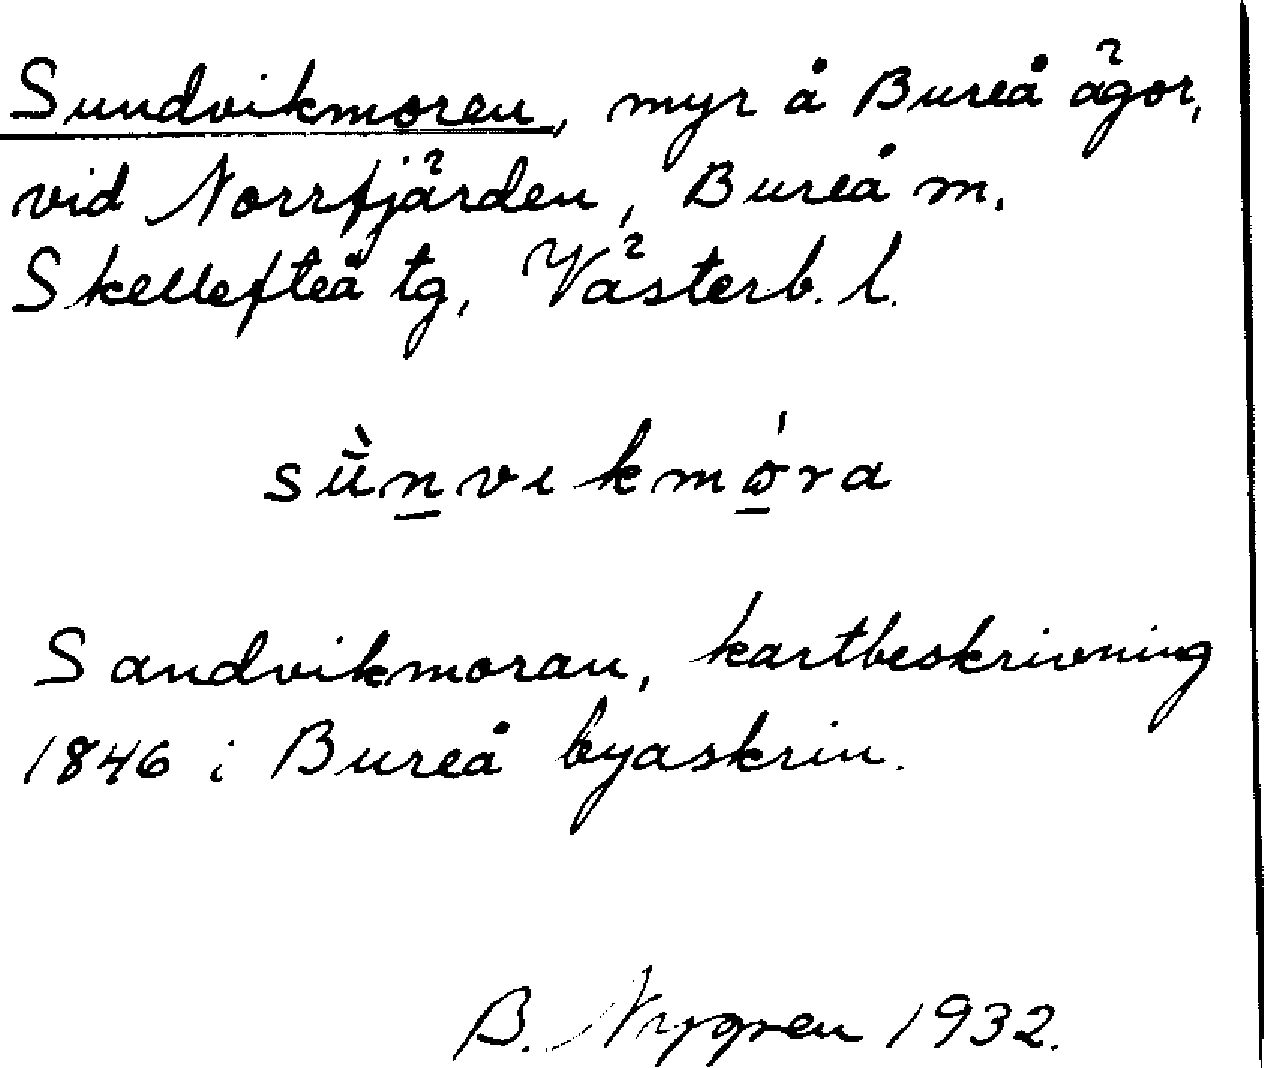 Sundvikmoren, myr å Bureå ägor,
vid Norrfjärden, Bureå m.
Skellefteå tg, Västerb. l.
sǜn̲vıkmǫ́ra
Sandvikmoran, kartbeskrivning
1846 i Bureå byaskrin.
B. Nygren 1932.